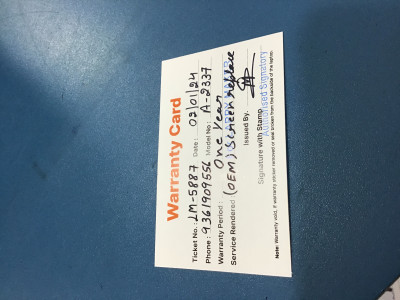 Warranty Card
Ticket No. : LM-5887 Date : 02/01/24
Phone : 9361909556 Model No : A-2337
Warranty Period : One Year
Service Rendered : (OEM) Screen replace
Issued By.
Signature with Stamp
Authorised Signatory
Note: Warranty void, if warranty sticker removed or was broken from the backside of the laptop.